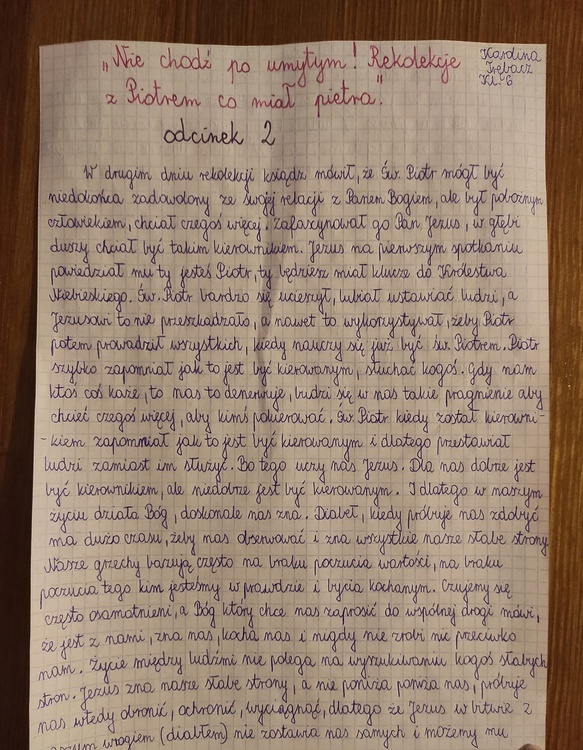 „Nie chodź po umytym! Rekolekcje
z Piotrem co miał pietra."
Karolina
Trębacz
Kl. 6
odcinek 2
W drugim dniu rekolekcji ksiądz mówił, że Św. Piotr mógł być
niedokońca zadowolony ze swojej relacji z Panem Bogiem, ale był pobożnym
człowiekiem, chciał czegoś więcej. Zafascynował go Pan Jezus, w głębi
duszy chciał być takim kierownikiem. Jezus na pierwszym spotkaniu
powiedział mu ty jesteś Piotr, ty będziesz miał klucze do Królestwa
Niebieskiego. Św. Piotr bardzo się ucieszył, lubiał ustawiać ludzi, a
Jezusowi to nie przeszkadzało, a nawet to wykorzystywał, żeby Piotr
potem prowadził wszystkich, kiedy nauczy się już być św. Piotrem. Piotr
szybko zapomniał jak to jest być kierowanym, słuchać kogoś. Gdy nam
ktoś coś każe, to nas to denerwuje, budzi się w nas takie pragnienie aby
chcieć czegoś więcej, aby kimś pokierować. Św. Piotr kiedy został kierowni-
-kiem zapomniał jak to jest być kierowanym i dlatego przestawiał
ludzi zamiast im służyć. Bo tego uczy nas Jezus. Dla nas dobrze jest
być kierownikiem, ale niedobrze jest być kierowanym. I dlatego w naszym
życiu działa Bóg, doskonale nas zna. Diabeł, kiedy próbuje nas zdobyć
ma dużo czasu, żeby nas obserwować i zna wszystkie nasze słabe strony.
Nasze grzechy bazują często na braku poczucia wartości, na braku
poczucia tego kim jesteśmy w prawdzie i bycia kochanym. Czujemy się
często osamotnieni, a Bóg który chce nas zaprosić do wspólnej drogi mówi,
że jest z nami, zna nas, kocha nas i nigdy nie zrobi nic przeciwko
nam. Życie między ludźmi nie polega na wyszukiwaniu kogoś słabych
stron. Jezus zna nasze słabe strony, a nie poniża poniża nas, próbuje
nas wtedy obronić, ochronić, wyciągnąć, dlatego że Jezus w bitwie z
naszym wrogiem (diabłem) nie zostawia nas samych i możemy mu